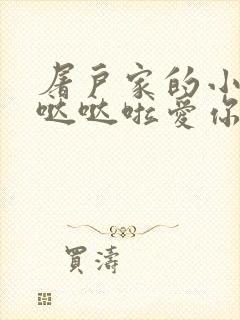 屠户家的小
哒哒啦爱你
買濤